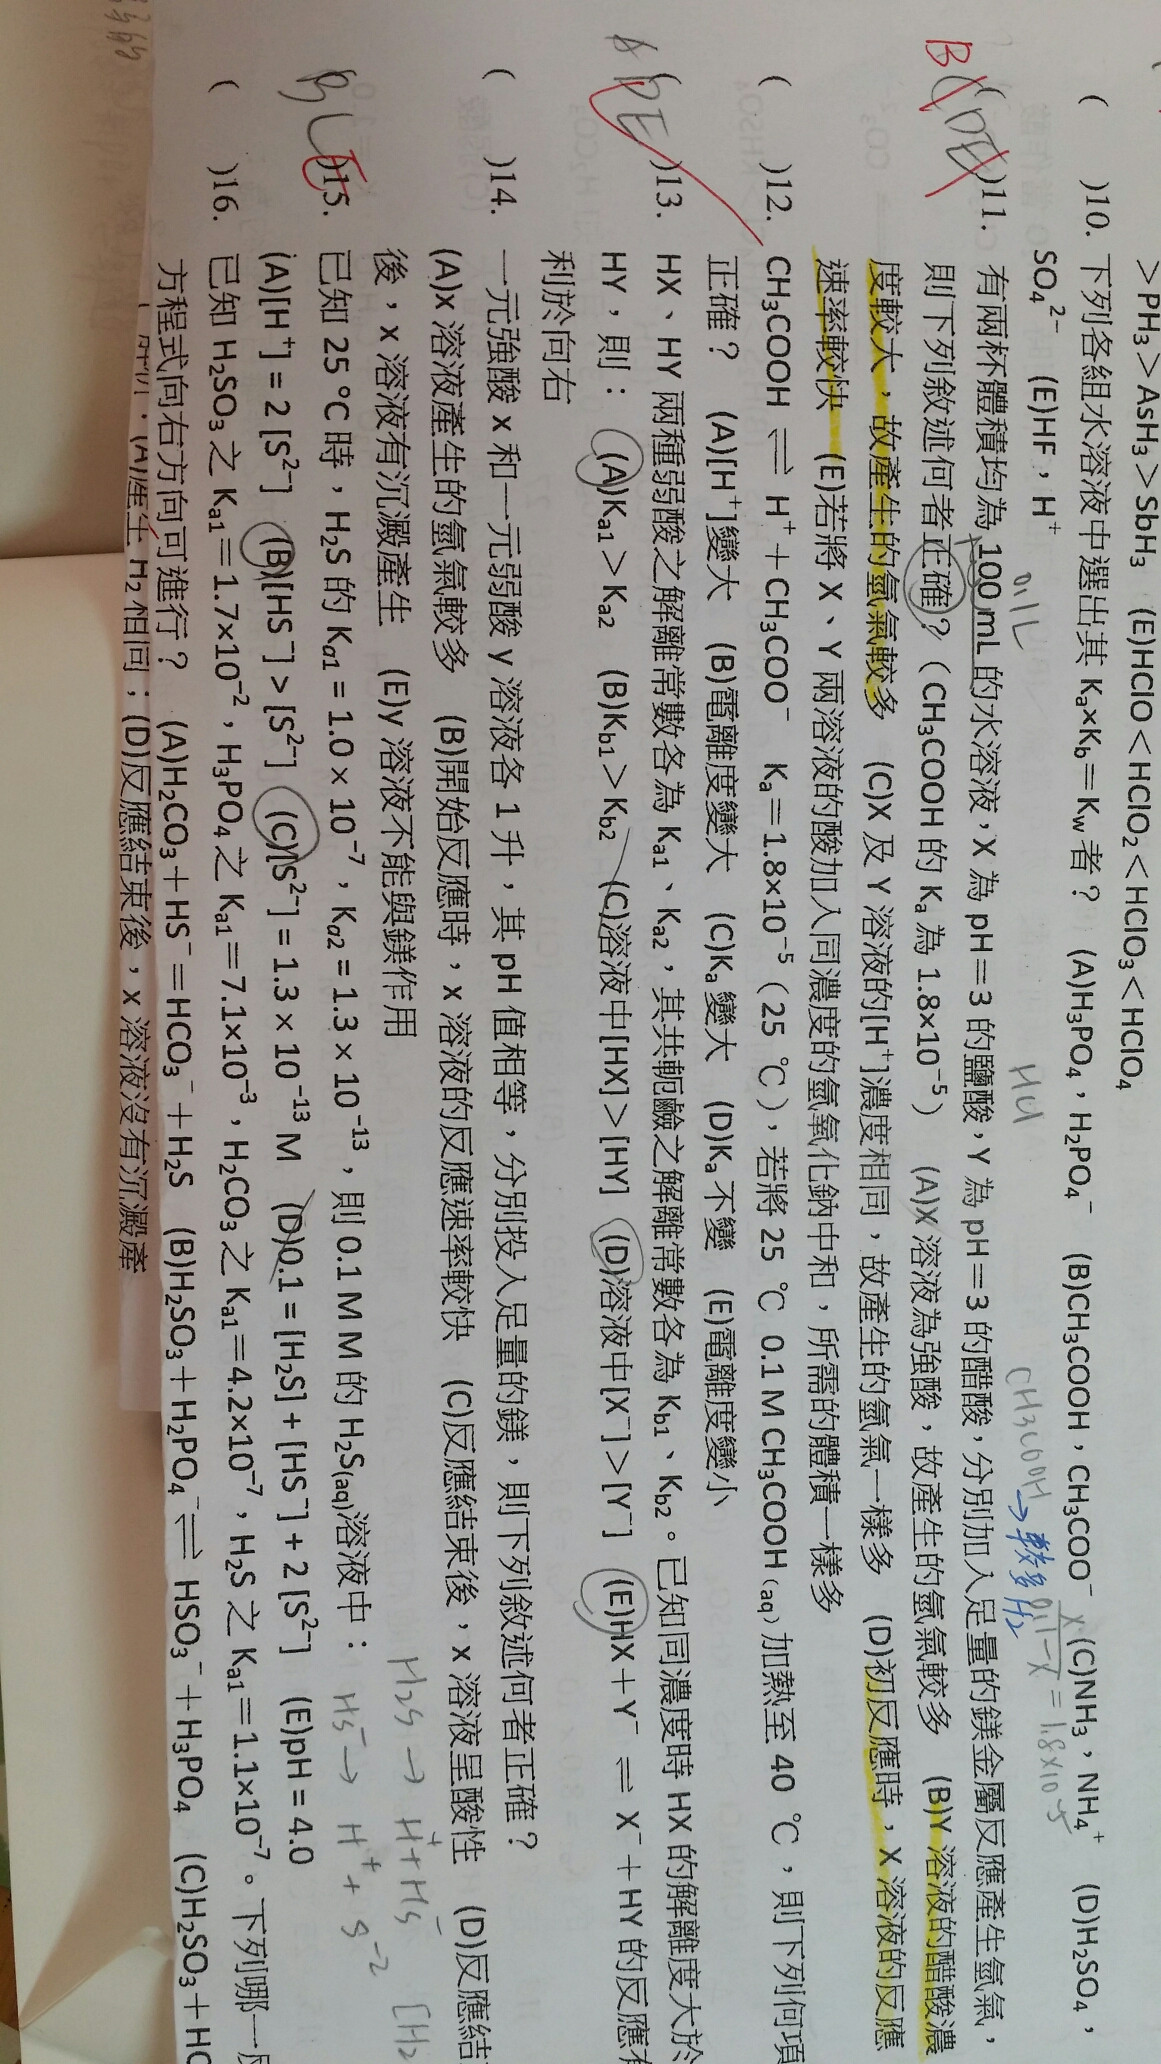 ＞PH₃＞AsH₃＞SbH₃ (E)HClO＜HClO₂＜HClO₃＜HClO₄
( )10. 下列各組水溶液中選出其 Kₐ×K_b＝K_w 者？ (A)H₃PO₄，H₂PO₄⁻ (B)CH₃COOH，CH₃COO⁻ (C)NH₃，NH₄⁺ (D)H₂SO₄，
SO₄²⁻ (E)HF，H⁺
0.1L HCl CH₃COOH → 較多H₂
x/0.1-x = 1.8×10⁻⁵
B
( DE )11. 有兩杯體積均為 100 mL 的水溶液，X 為 pH＝3 的鹽酸，Y 為 pH＝3 的醋酸，分別加入足量的鎂金屬反應產生氫氣，
則下列敘述何者正確？（CH₃COOH 的 Kₐ 為 1.8×10⁻⁵） (A)X 溶液為強酸，故產生的氫氣較多 (B)Y 溶液的醋酸濃
度較大，故產生的氫氣較多 (C)X 及 Y 溶液的[H⁺]濃度相同，故產生的氫氣一樣多 (D)初反應時，X 溶液的反應
速率較快 (E)若將 X、Y 兩溶液的酸加入同濃度的氫氧化鈉中和，所需的體積一樣多
( )12. CH₃COOH ⇌ H⁺＋CH₃COO⁻ Kₐ＝1.8×10⁻⁵（25 ℃），若將 25 ℃ 0.1 M CH₃COOH₍aq₎加熱至 40 ℃，則下列何項
正確？ (A)[H⁺]變大 (B)電離度變大 (C)Kₐ變大 (D)Kₐ不變 (E)電離度變小
( ADE )13. HX、HY 兩種弱酸之解離常數各為 Kₐ₁、Kₐ₂，其共軛鹼之解離常數各為 K_b1、K_b2。已知同濃度時 HX 的解離度大於
HY，則： (A)Kₐ₁＞Kₐ₂ (B)K_b1＞K_b2 (C)溶液中[HX]＞[HY] (D)溶液中[X⁻]＞[Y⁻] (E)HX＋Y⁻ ⇌ X⁻＋HY 的反應有
利於向右
( )14. 一元強酸 x 和一元弱酸 y 溶液各 1 升，其 pH 值相等，分別投入足量的鎂，則下列敘述何者正確？
(A)x 溶液產生的氫氣較多 (B)開始反應時，x 溶液的反應速率較快 (C)反應結束後，x 溶液呈酸性 (D)反應結
後，x 溶液有沉澱產生 (E)y 溶液不能與鎂作用
H₂S → H⁺+HS⁻ [H₂
( BC E )15. 已知 25 °C 時，H₂S 的 Kₐ₁ = 1.0 × 10⁻⁷，Kₐ₂ = 1.3 × 10⁻¹³，則 0.1 M M 的 H₂S(aq)溶液中：
HS⁻ → H⁺ + S⁻²
(A)[H⁺] = 2 [S²⁻] (B)[HS⁻] > [S²⁻] (C)[S²⁻] = 1.3 × 10⁻¹³ M (D)0.1 = [H₂S] + [HS⁻] + 2 [S²⁻] (E)pH = 4.0
( )16. 已知 H₂SO₃ 之 Kₐ₁＝1.7×10⁻²，H₃PO₄ 之 Kₐ₁＝7.1×10⁻³，H₂CO₃ 之 Kₐ₁＝4.2×10⁻⁷，H₂S 之 Kₐ₁＝1.1×10⁻⁷。下列哪一反
方程式向右方向可進行？ (A)H₂CO₃＋HS⁻＝HCO₃⁻＋H₂S (B)H₂SO₃＋H₂PO₄⁻ ⇌ HSO₃⁻＋H₃PO₄ (C)H₂SO₃＋HC
(A)產生 H₂ 相同；(D)反應結束後，x 溶液沒有沉澱產